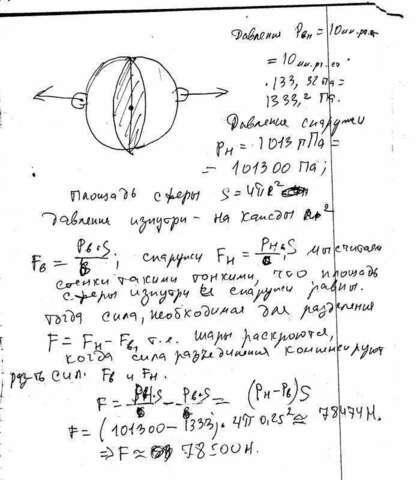 Давление Pвн = 10 мм.рт.ст
= 10 мм.рт.ст.
· 133,32 Па =
1333,2 Па.
Давление снаружи
Pн = 1013 гПа =
= 101300 Па;
Площадь сферы S = 4πR²
давление изнутри – на каждый
Fв = Pв·S ; снаружи Fн = Pн·S мы считаем
стенки такими тонкими, что площадь
сферы изнутри и снаружи равны.
Тогда сила, необходимая для разделения
F = Fн – Fв, т.е. шары раскроются,
когда сила разъединения компенсирует
сил. Fв и Fн.
F = Pн·S – Pв·S = (Pн – Pв)S
F = (101300 – 1333)·4π 0,25² ≈ 78474 Н.
⇒ F ≈ 78500 Н.